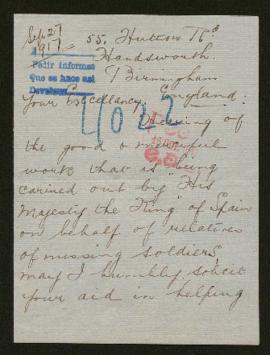 Sep 27
1917
55, Hutton Rd
Handsworth,
Birmingham
England.
Pedir informes
Que se hace así
Your Excellency,
4042
Hearing of
the good & merciful
work that is being
carried out by "His
Majesty the King" of Spain
on behalf of relatives
of missing soldiers,
may I humbly solicit
your aid in helping